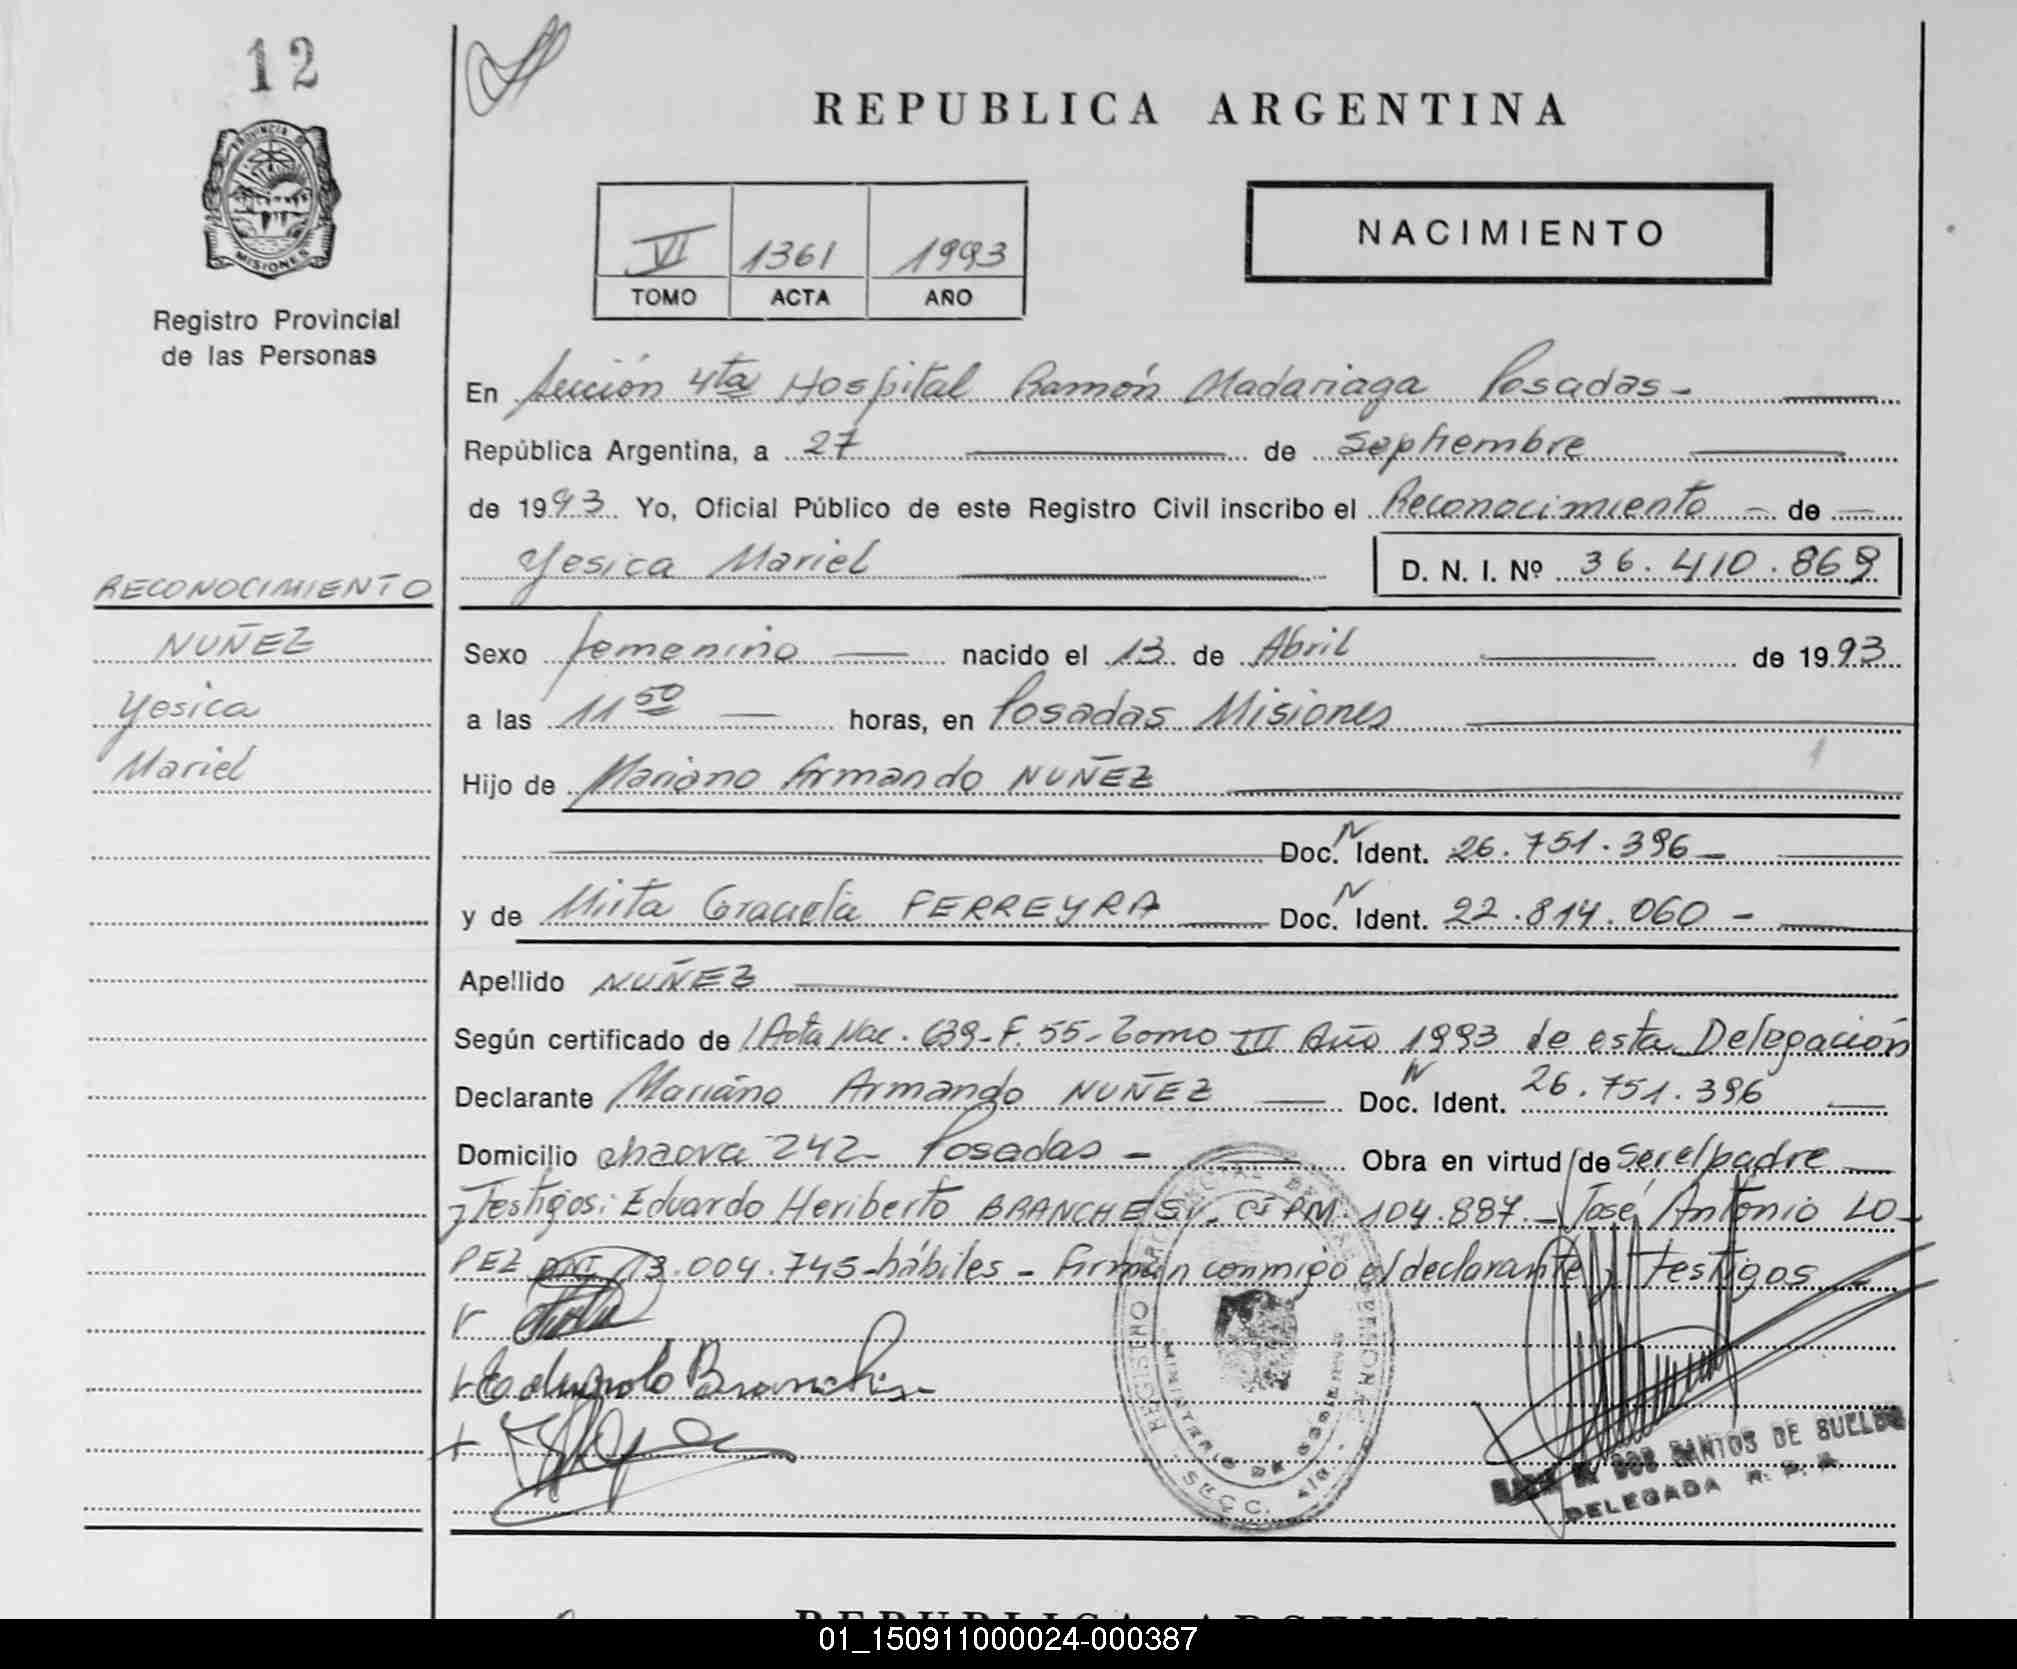 12
REPUBLICA ARGENTINA
PROVINCIA DE
MISIONES
Registro Provincial
de las Personas
VI 1361 1993
TOMO ACTA AÑO
NACIMIENTO
En Sección 4ta Hospital Ramón Madariaga Posadas-
República Argentina, a 27 de Septiembre
de 1993 Yo, Oficial Público de este Registro Civil inscribo el Reconocimiento - de -
Yesica Mariel D. N. I. Nº 36.410.869
RECONOCIMIENTO
NUÑEZ
Yesica
Mariel
Sexo femenino nacido el 13 de Abril de 1993
a las 11 50 horas, en Posadas Misiones
Hijo de Mariano Armando NUÑEZ
Doc. N Ident. 26.751.396-
y de Mirta Graciela FERREYRA Doc. N Ident. 22.814.060-
Apellido NUÑEZ
Según certificado de /Acta Nac. 639-F. 55-Tomo III Año 1993 de esta Delegación
Declarante Mariano Armando NUÑEZ Doc. N Ident. 26.751.396
Domicilio 242- Posadas - Obra en virtud/de Ser el padre
Testigos: Eduardo Heriberto BRANCHESI. CI PM. 104.887.- José Antonio LO-
PEZ DNI 13.004.745-hábiles - Firman conmigo el declarante y testigos -
REGISTRO PROVINCIAL DE LAS PERSONAS
MINISTERIO DE GOBIERNO
SECC. 4ta
DOS SANTOS DE SUELDO
DELEGADA R. P. P.
REPUBLICA ARGENTINA
01_150911000024-000387